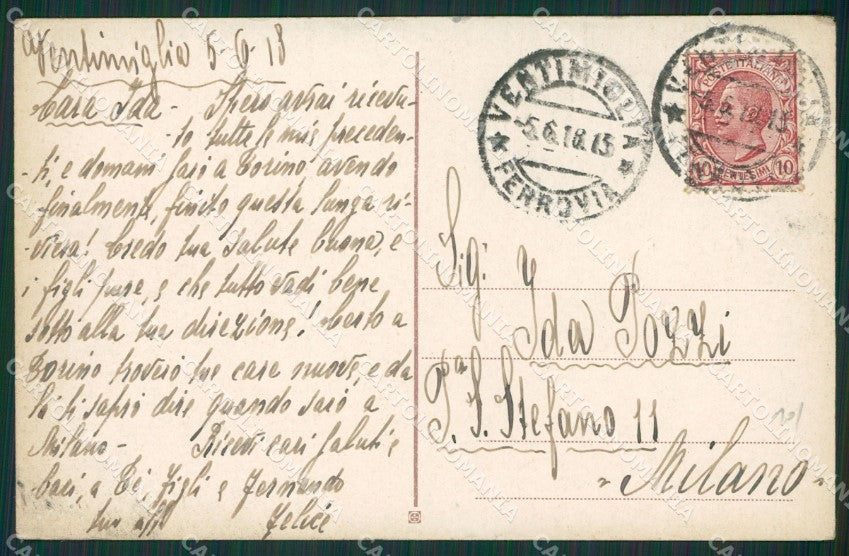 Ventimiglia 5-6-18
Cara Ida - Spero avrai ricevu-
to tutte le mie preceden-
ti, e domani sarò a Torino, avendo
finalmente, finito questa lunga ri-
viera! Credo tua salute buona, e
i figli pure, e che tutto vadi bene
sotto alla tua direzione! Certo a
Torino troverò tue care nuove, e da
là ti saprò dire quando sarò a
Milano - Ricevi cari saluti e
baci, a Te, figli e Fernando
tuo affo Felice
VENTIMIGLIA
5.6.18.15
FERROVIA
POSTE ITALIANE
10 CENTESIMI 10
Sig: Ida Pozzi
Pza S. Stefano 11
Milano
CARTOLINOMANIA